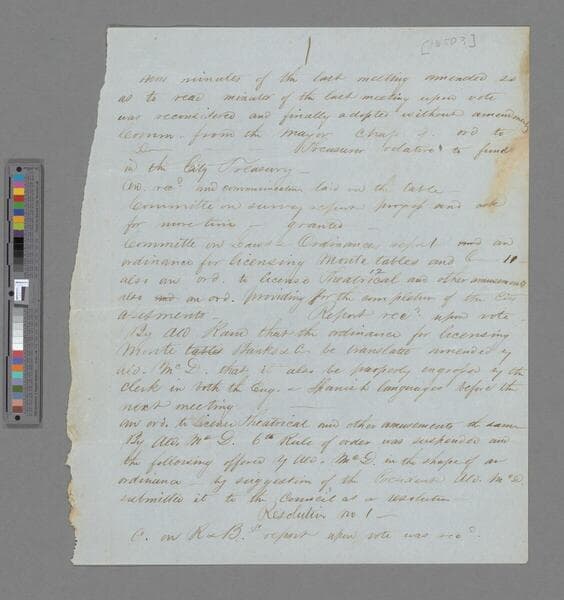 minutes of the last meeting amended so
as to read minutes of the last meeting upon vote
was reconsidered and finally adopted without amendments
Comm. from the Mayor ord to
Do Treasurer relative to funds
in the City Treasury —
On. recd and communication laid on the table
Committee on survey report progress and ask
for more time — granted
Committee on Laws & Ordinances report an
ordinance for licensing Monte tables and
also an ord. to license Theatrical and other amusements
also an ord. providing for the completion of the City
assesments — Report recd. upon vote
By Ald that the ordinance for licensing
Monte tables Banks &c be translated amended by
Ald. McD. that it also be properly engrossed by the
clerk in both the Eng. & Spanish languages before the
next meeting
An ord. to license Theatrical and other amusements do same
By Ald. McD. 6th Rule of order was suspended and
the following offered by Ald. McD. in the shape of an
ordinance — by suggestion of the President Ald. McD.
submitted it to the Council as a resolution
Resolution no 1 —
C. on R & B.s report upon vote was recd.